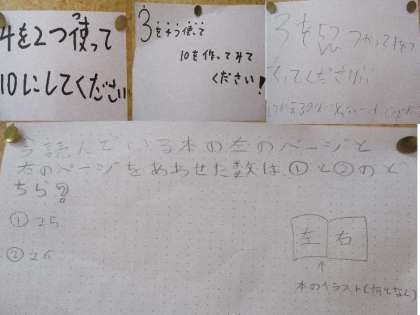 4を2つ使って
10にしてください
3を4つ使って
10を作ってみて
ください!
3を5つ つかって
ください
今読んでいる本の左のページと
右のページをあわせた数は、①と②のど
ちら?
① 25
② 26
左 右
本のイラスト(何となく)